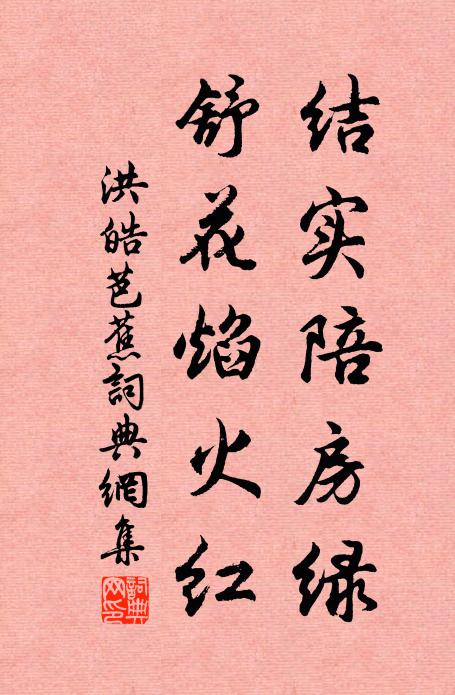 结实陪房绿
舒花焰火红
洪皓芭蕉詞典網集
詞典网印